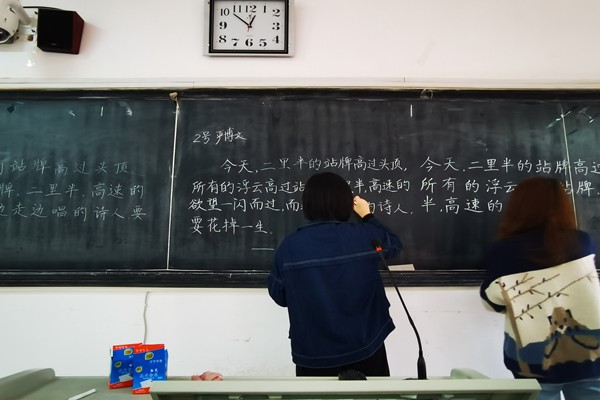 10 11 12 1 2 3 4 5 6 7 8 9
站牌高过头顶
牌，二里半，高速的
边走边唱的诗人要
2号 尹博文
今天，二里半的站牌高过头顶，
所有的浮云高过站 半，高速的
欲望一闪而过，而 的诗人，
要花掉一生．
今天，二里半的站牌高过
所有的浮云 站牌，
半，高速的